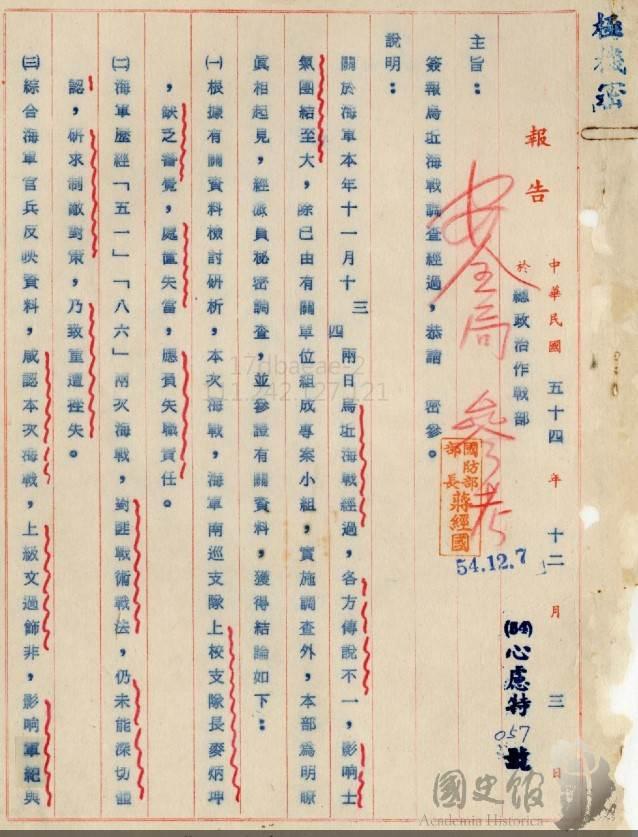 極機密
報告
中華民國五十四年十二月三日
於總政治作戰部
(54)心慮特057號
主旨：
簽報烏坵海戰調查經過，恭請　密參。
說明：
關於海軍本年十一月十三四兩日烏坵海戰經過，各方傳說不一，影响士
氣團結至大，除已由有關單位組成專案小組，實施調查外，本部為明瞭
眞相起見，經派員秘密調查，並參證有關資料，獲得結論如下：
㈠根據有關資料檢討研析，本次海戰，海軍南巡支隊上校支隊長麥炳坤
，缺乏警覺，處置失當，應負失職責任。
㈡海軍歷經「五一」「八六」兩次海戰，對匪戰術戰法，仍未能深切體
認，研求制敵對策，乃致重遭挫失。
㈢綜合海軍官兵反映資料，咸認本次海戰，上級文過飾非，影响軍紀與
安全局參考
國防部部長蔣經國
54.12.7
17dbaeae-2
111.242.127.121
國史館
Academia Historica